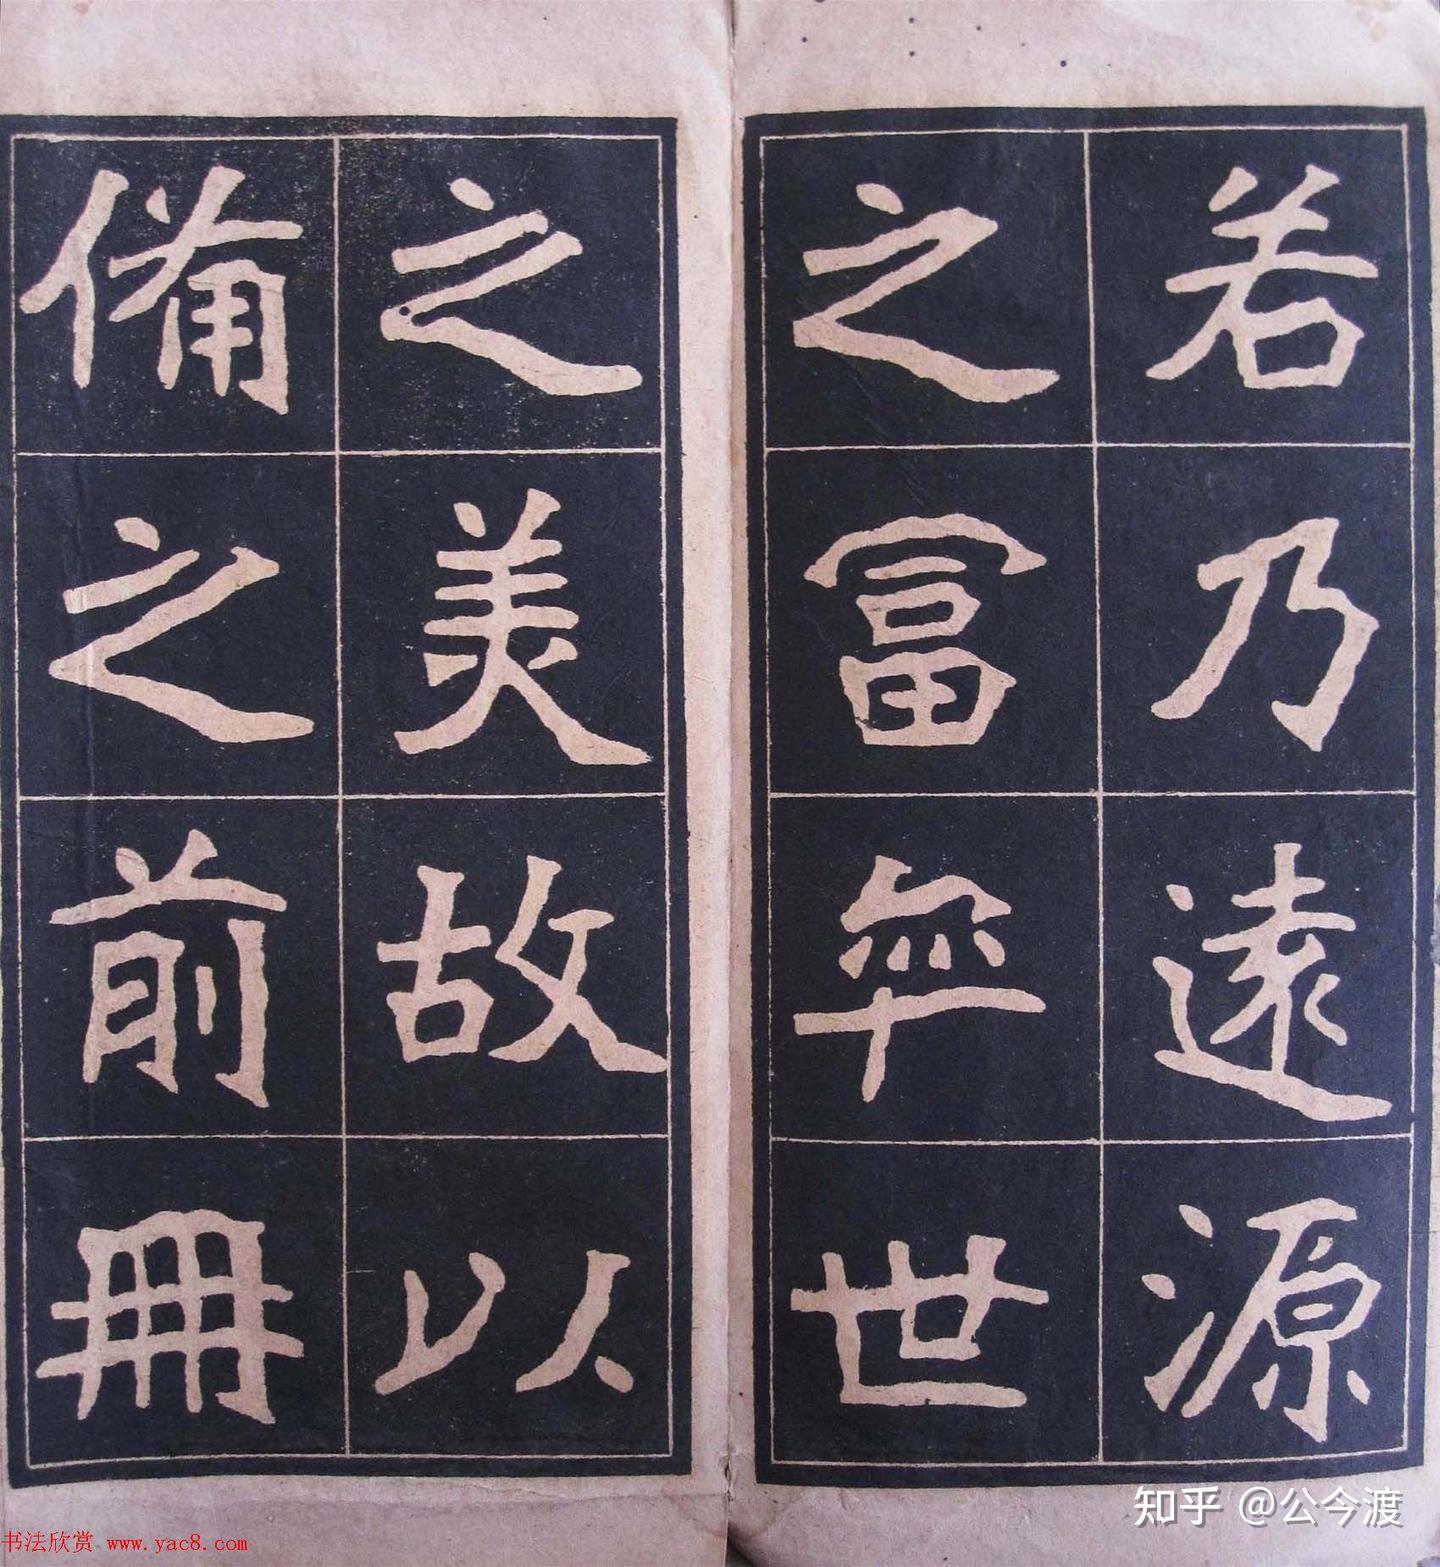 若乃遠源
之富奕世
之美故以
備之前冊
知乎 @公今渡
书法欣赏 www.yac8.com